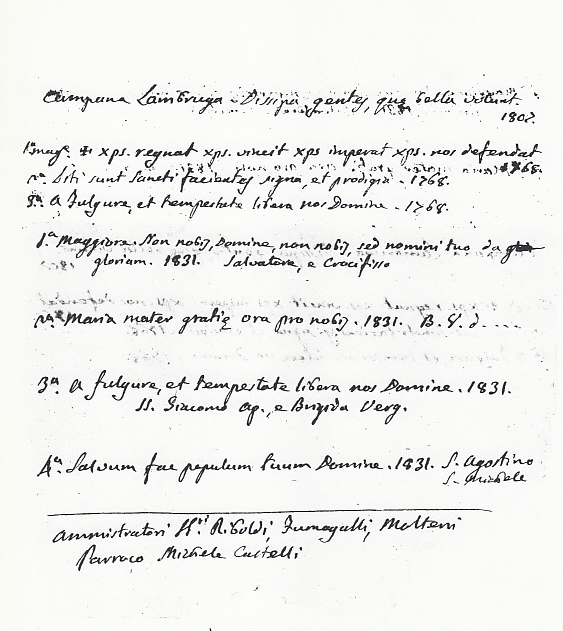 Campana Lambruga - Dissipa gentes, quę bella volunt.
1802.
1ª magᵉ. ✠ xps. regnat xps. vincit xps imperat xps. nos defendat
1768.
2ª. Isti sunt Sancti facientes signa, et prodigia - 1768.
3ª. A Fulgure, et tempestate libera nos Domine - 1768.
1ª Maggiore. Non nobis, Domine, non nobis, sed nomini tuo da
gloriam. 1831. Salvatore, e Crocifisso
2ª. Maria mater gratię ora pro nobis. 1831. B. V. d....
3ª. A fulgure, et tempestate libera nos Domine. 1831.
SS. Giacomo Ap., e Brigida Verg.
4ª. Salvum fac populum tuum Domine. 1831. S. Agostino
S. Michele
Amministratori Riboldi, Fumagalli, Molteni
Parroco Michele Castelli